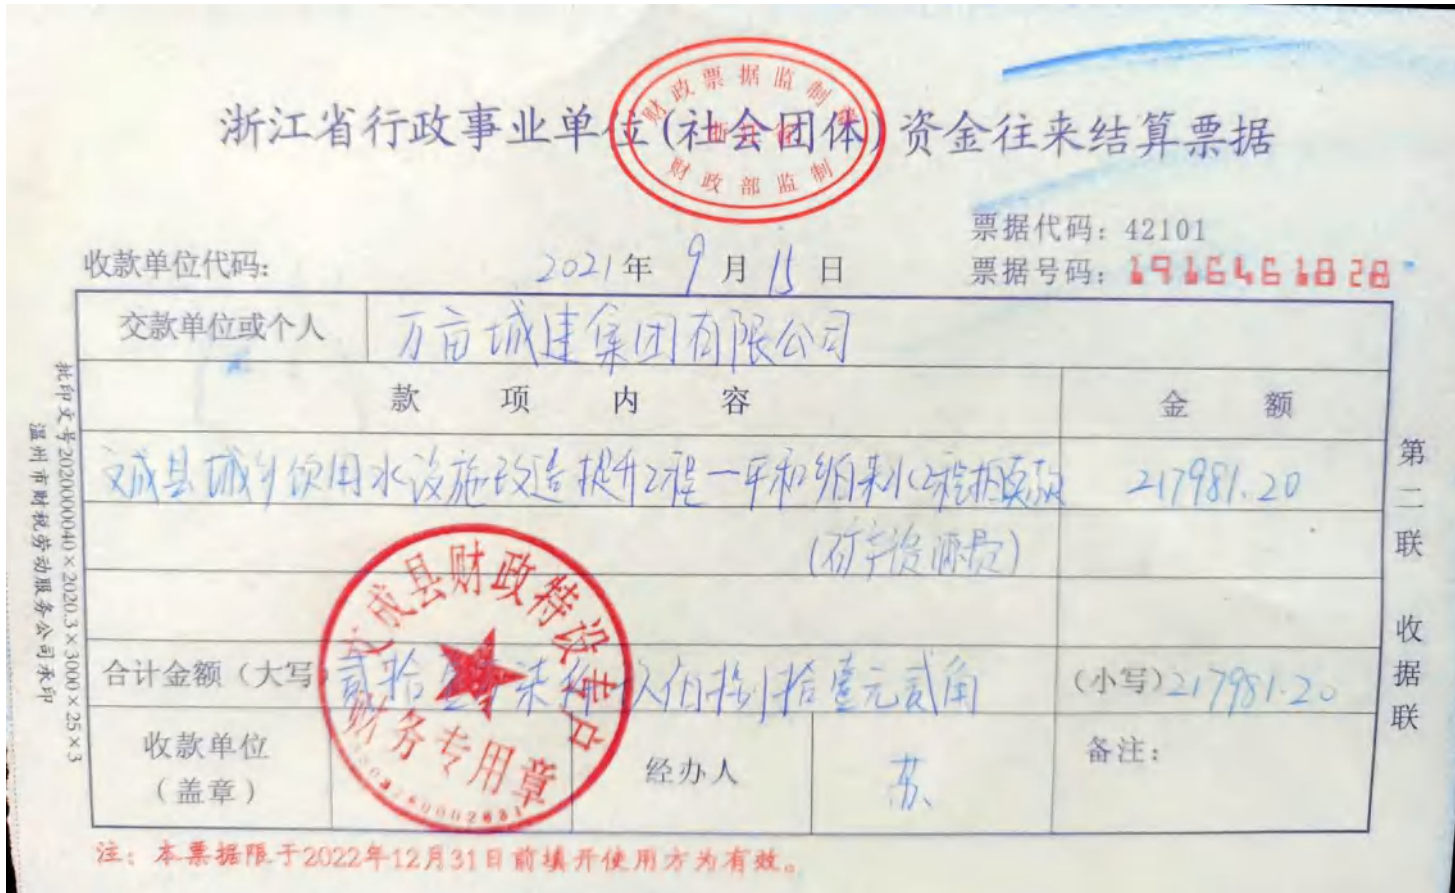 浙江省行政事业单位(社会团体)资金往来结算票据
财政票据监制章
浙江省
财政部监制
票据代码：42101
收款单位代码：
2021年 9月 15日
票据号码：1916461828
交款单位或个人
万亩城建集团有限公司
款项内容
金额
文成县城乡饮用水设施改造提升工程一平和 水
217981.20
(矿产资源费)
合计金额（大写）
贰拾壹万柒仟玖佰捌拾壹元贰角
(小写)217981.20
收款单位
（盖章）
经办人
苏
备注：
文成县财政特设专户
财务专用章
第二联 收据联
批印文号2020000040×2020.3×3000×25×3
温州市财税劳动服务公司承印
注：本票据限于2022年12月31日前填开使用方为有效。